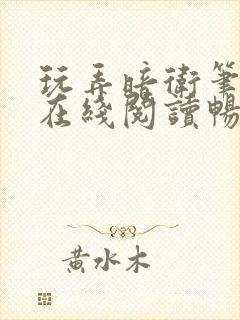 玩弄暗衛筆
在綫閱讀暢
黃水木